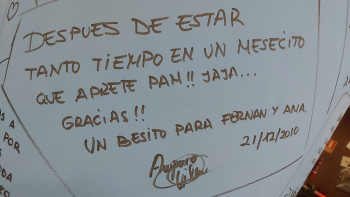 DESPUES DE ESTAR
TANTO TIEMPO EN UN MESECITO
QUE APRETE PAM!! JAJA...
GRACIAS!!
UN BESITO PARA FERNAN Y ANA.
21/12/2010
Amparo
S A
POR
DA